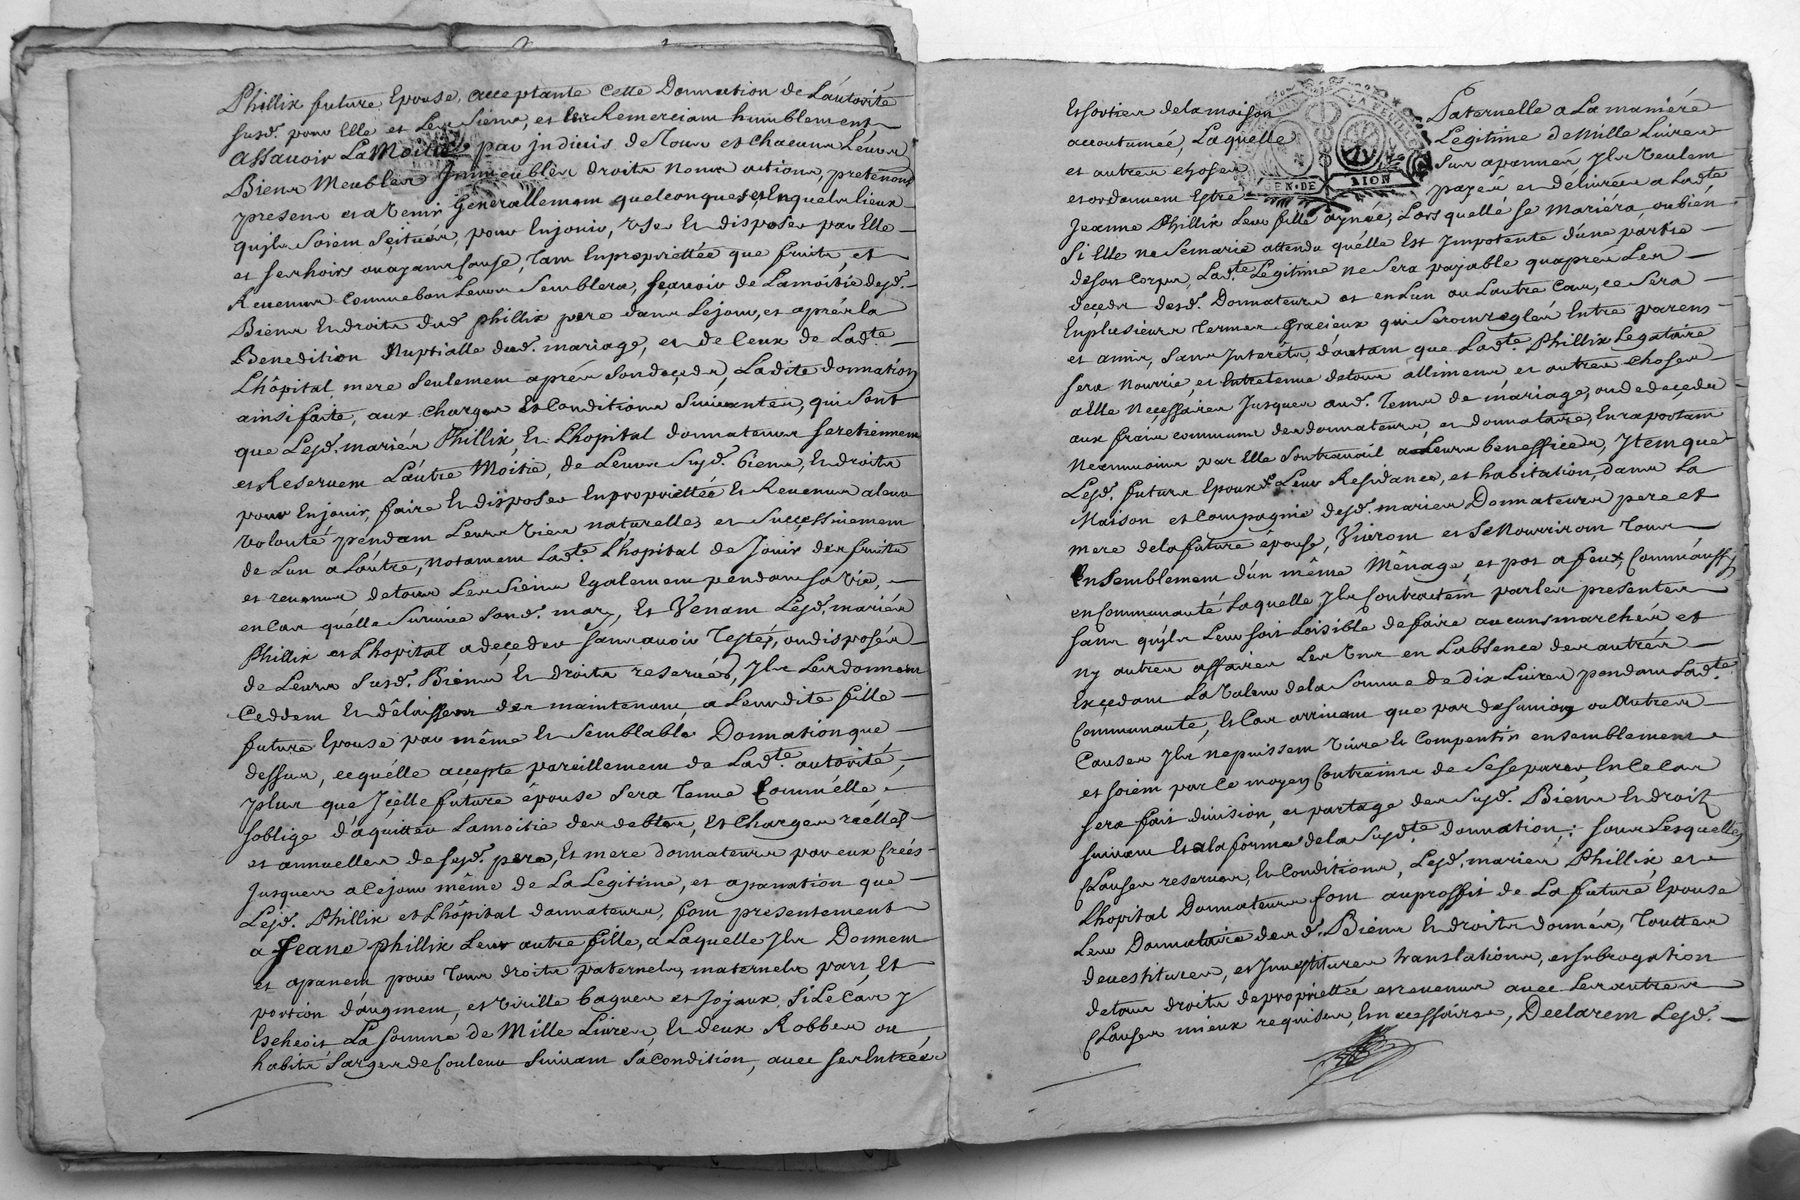 Phillix future Epouse, acceptante cette Donnation de Lautorité
susd. pour Elle et Les Siens, et les Remerciant humblement
Assauoir La Moitié par indiuis de Tous et Chacuns Leurs
Biens Meubles Jmmeubles droits Noms actions, pretentions
presens et a Venir Generallement quelconques et En quels Lieux
quils Soient Scituės, pour En jouir, Vser Et disposer par Elle
et ses hoirs ou ayans Cause, Tant En proprietée que fruits et
Reuenus comme bon Leurs Semblera, Sçauoir de La moitié desd.
Biens Et droits dud. phillix pere dans Le jour, et aprés la
Benedition Nuptialle dud. mariage, et de Ceux de Lad.te
L'hôpital mere Seulement aprés Son decéds, Ladite donnation
ainsi faite, aux Charges Et Conditions Suiuantes, qui Sont
que Lesd. mariés Phillix Et Lhopital donnateurs se retiennent
et Reseruent L'autre Moitié, de Leurs Susd. biens, Et droits
pour En jouir, faire Et disposer En proprietée Et Reuenus a leur
Volonté pendant Leurs Vies naturelles et Successiuement
de L'un a L'autre, notament Lad.te L'hopital de Jouir des fruits
et reuenus de tous Les Siens Egalement pendant sa Vie,
en Cas qu'elle Suruiue Sond. mary, Et Venant Lesd. mariés
Phillix et Lhopital a decéder sans auoir Testés, ou disposés
de Leurs Susd. Biens Et droits reserués, Jls Les donnent
Ceddent Et délaissent dés maintenant a Leurdite fille
future Epouse par même Et Semblable Donnation que
dessus, ce qu'elle accepte pareillement de Lad.te autorité,
plus que Jcelle future épouse sera Tenue Comm'elle
s'oblige d'aquitter La moitie des debtes, Et Charges réelles
et annuelles de sesd. pere, Et mere donnateurs par eux Créés
Jusques a Ce jour même de La Legitime, et apanation que
Lesd. Phillix et Lhôpital donnateurs, font presentement
a Jeane phillix Leur autre fille, a Laquelle Jls Donnent
et apanent pour Tous droits paternels, maternels part Et
portion d'augment, et Virille bagues et Joyaux Si Le Cas y
Escheoit La Somme de Mille Liures, Et deux Robbes ou
habits Sarges de Couleur Suiuant Sa Condition, auec ses Entrées
Et Sorties de la maison Paternelle a La maniére
accoutumée, Laquelle Legitime de Mille Liures
et autres choses Sus apannés Jls Veulent
et ordonnent Estre payés et délivrés a Lad.te
Jeanne Phillix Leur fille aynée, Lors quelle se mariéra, ou bién
Si Elle ne Se marie attendu quélle Est Jmpotente d'une partie
de son Corps, Lad.te Legitime ne Sera payable qu'apres Les
deceds desd. Donnateurs et en Lun ou L'autre Cas, ce Sera
En plusieurs Termes Gracieux qui Seront reglés Entre parens
et amis, Sans Jnterêts, d'autant que Lad.te Phillix Legataire
sera Nourrie et Entretenue de tous allimens et autres choses
a Elle Neçessaires Jusques aud. Tems de mariage, ou de deçeds
aux frais communs des donnateurs, et donnatare, En raportant
Neanmoins par Elle Son trauail a Leurs bénéffices, Jtem que
Lesd. futurs Epoux Leur Residance, et habitation, dans La
Maison et Compagnie desd. mariés Donnateurs pere et
mere de la future épouse, Viuront et Se Nourriront Tous
Ensemblement d'un même Ménage et pot a feux, Comm'aussy
en Communauté Laquelle Jls Contractent par les presentes
sans quils Leur soit Loisible de faire aucuns marchés et
ny autres affaires Les Vns en L'absence des autrés
Excedant La Valeur de la Somme de Dix Liures pendant Lad.te
Communaute, Et Cas arriuant que par desunion ou autres
Causes Jls ne puissent Viure Et Compentir ensemblement
et soient par Ce moyen Contraints de Se Separer, En Ce Cas
sera fait diuision, et partage des Susd. Biens Et droits
suiuant Et a la forme de la Susd.te donnation; Sous Lesquelles
Clauses reserues, Et Conditions, Lesd. mariés Phillix et
Lhopital Donnateurs font au proffit de La future Epouse
Leur Donnataire desd. Biens Et droits donnés, Touttes
deuestitures, et Jnuestitures translations, et subrogation
de tous droits de proprietée et reuenus auec Les autres
Clauses mieux requises, Et necessaires, Declarent Lesd.
GEN·DE RION